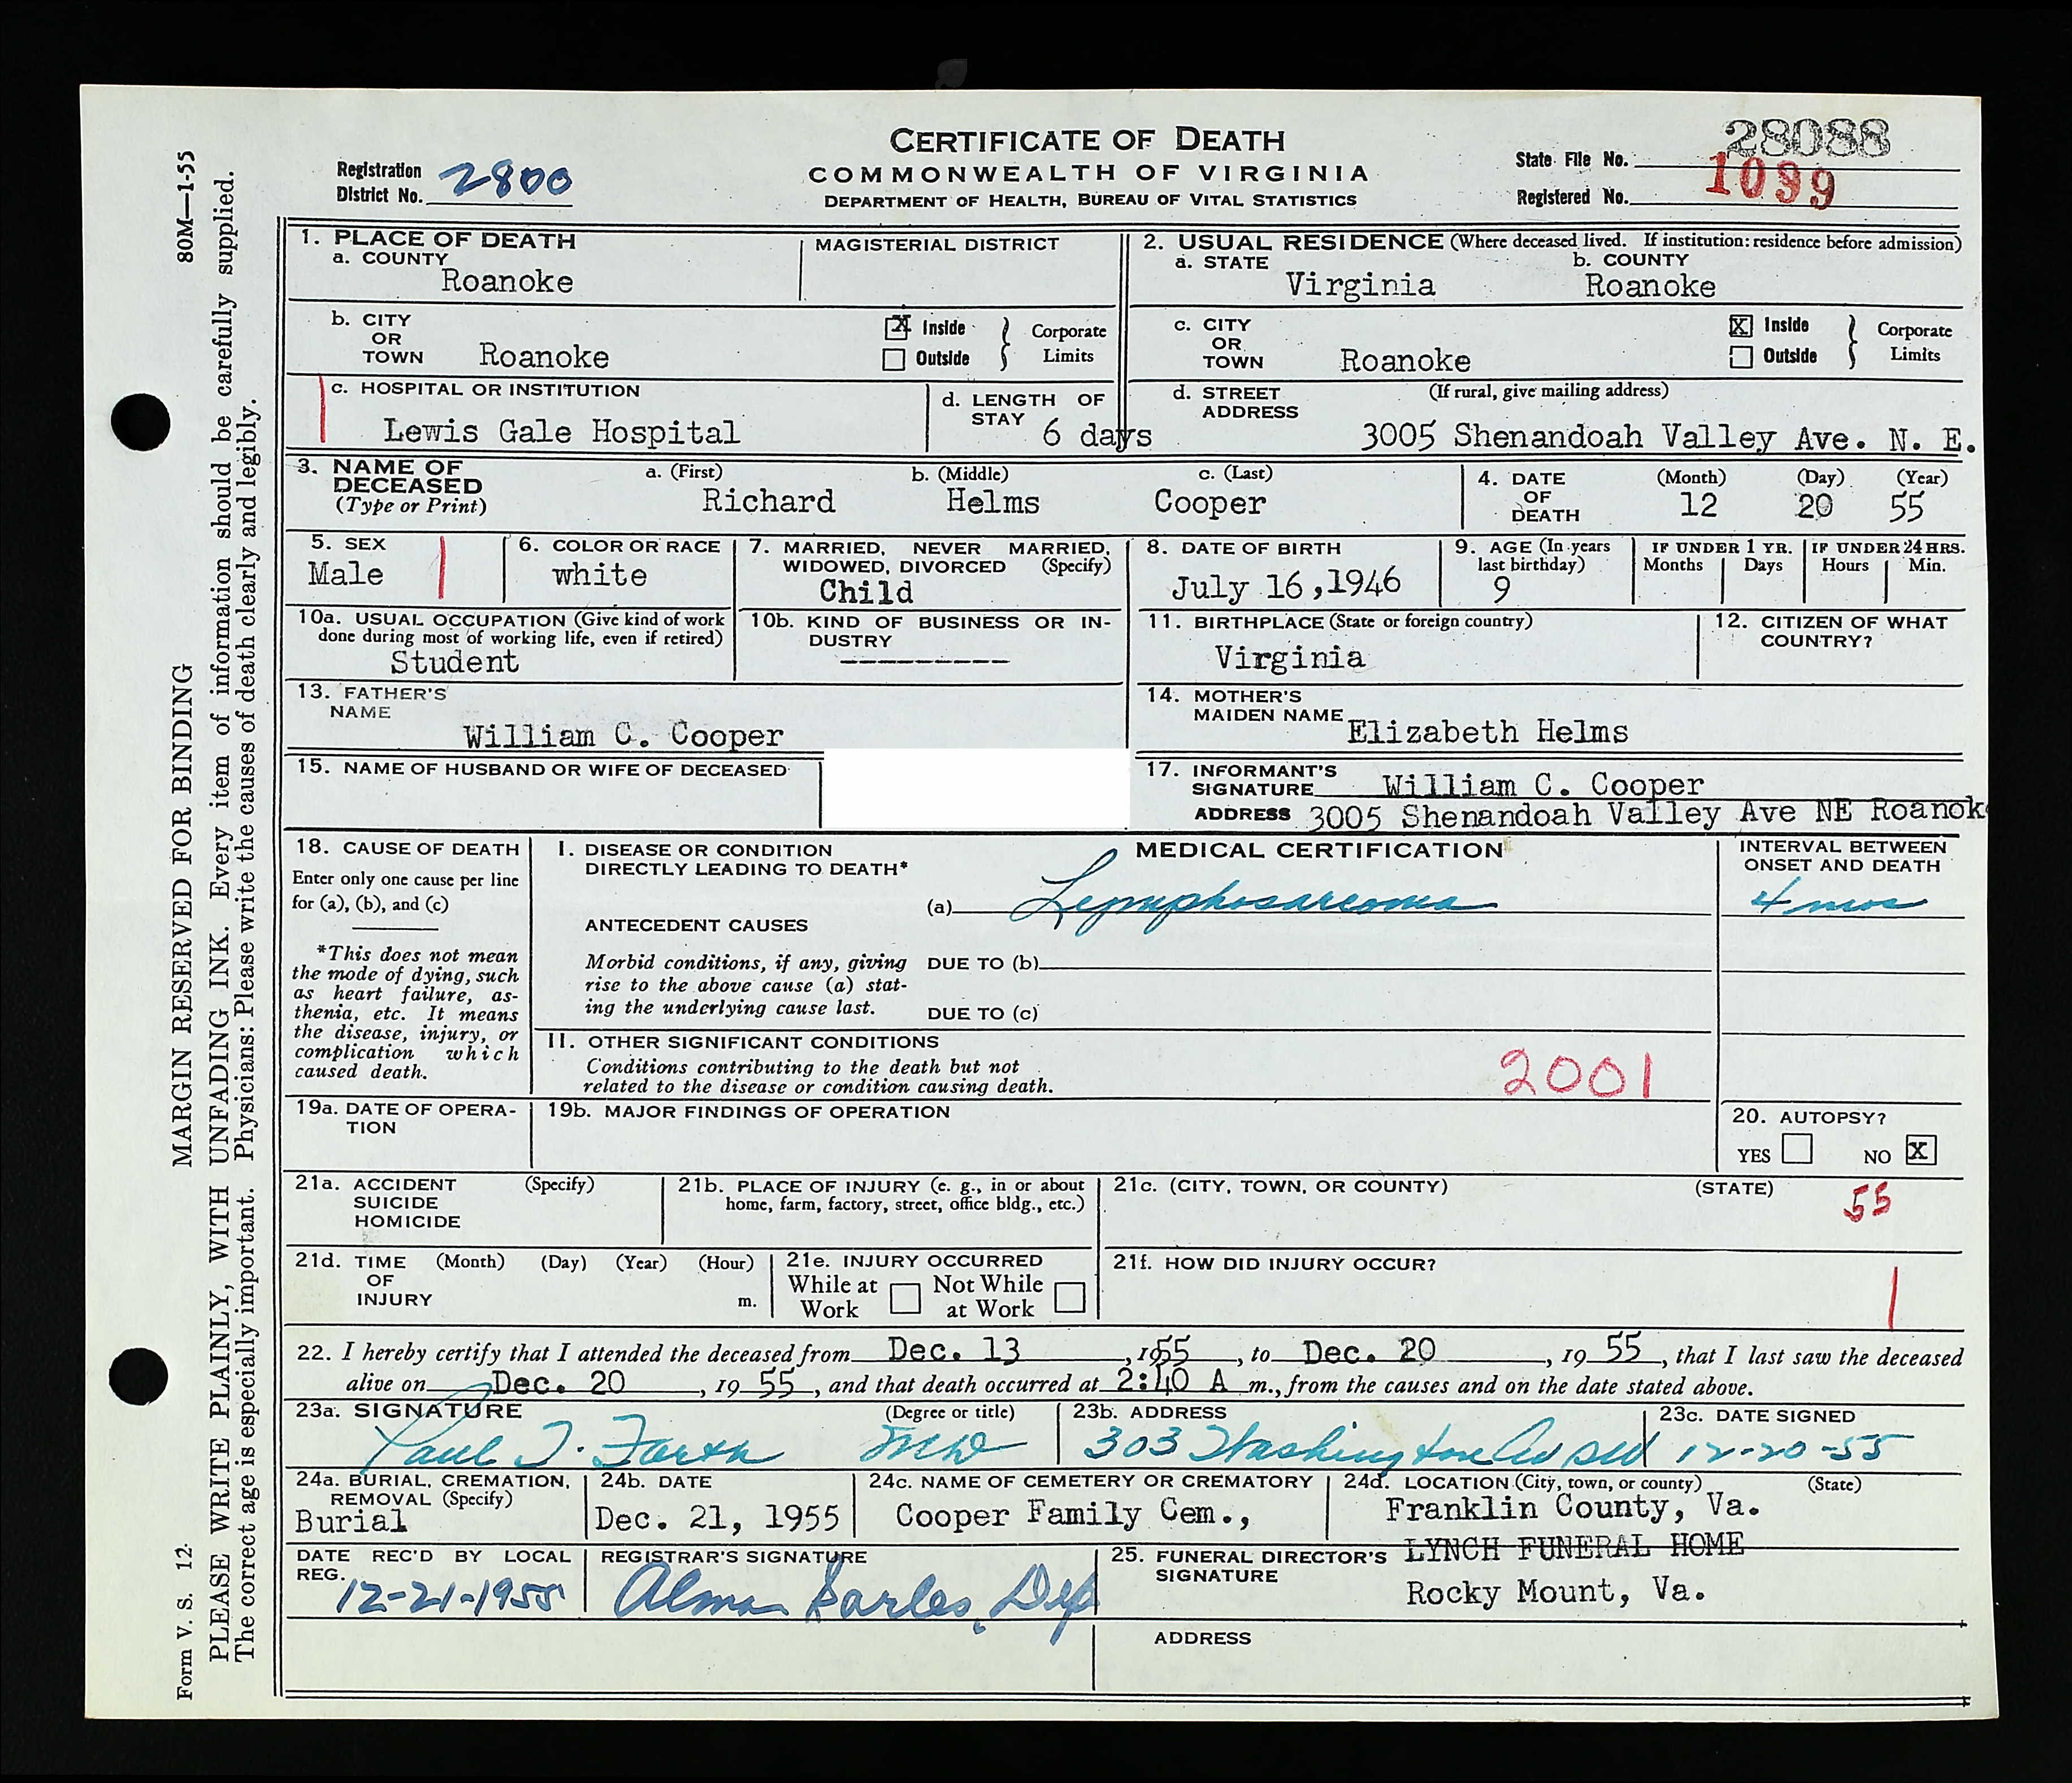 CERTIFICATE OF DEATH
COMMONWEALTH OF VIRGINIA
DEPARTMENT OF HEALTH, BUREAU OF VITAL STATISTICS
Registration District No. 2800
State File No. 28088
Registered No. 1099
80M—1-55
MARGIN RESERVED FOR BINDING
PLEASE WRITE PLAINLY, WITH UNFADING INK. Every item of information should be carefully supplied.
The correct age is especially important. Physicians: Please write the causes of death clearly and legibly.
Form V. S. 12.
1. PLACE OF DEATH
a. COUNTY
Roanoke
MAGISTERIAL DISTRICT
2. USUAL RESIDENCE (Where deceased lived. If institution: residence before admission)
a. STATE
Virginia
b. COUNTY
Roanoke
b. CITY OR TOWN Roanoke
X Inside
Outside
Corporate Limits
c. CITY OR TOWN Roanoke
X Inside
Outside
Corporate Limits
c. HOSPITAL OR INSTITUTION
Lewis Gale Hospital
d. LENGTH OF STAY 6 days
d. STREET ADDRESS (If rural, give mailing address)
3005 Shenandoah Valley Ave. N. E.
3. NAME OF DECEASED
(Type or Print)
a. (First)
Richard
b. (Middle)
Helms
c. (Last)
Cooper
4. DATE OF DEATH
(Month) (Day) (Year)
12 20 55
5. SEX
Male
6. COLOR OR RACE
white
7. MARRIED, NEVER MARRIED, WIDOWED, DIVORCED (Specify)
Child
8. DATE OF BIRTH
July 16,1946
9. AGE (In years last birthday)
9
IF UNDER 1 YR.
Months Days
IF UNDER 24 HRS.
Hours Min.
10a. USUAL OCCUPATION (Give kind of work done during most of working life, even if retired)
Student
10b. KIND OF BUSINESS OR INDUSTRY
----------
11. BIRTHPLACE (State or foreign country)
Virginia
12. CITIZEN OF WHAT COUNTRY?
13. FATHER'S NAME
William C. Cooper
14. MOTHER'S MAIDEN NAME
Elizabeth Helms
15. NAME OF HUSBAND OR WIFE OF DECEASED
17. INFORMANT'S SIGNATURE William C. Cooper
ADDRESS 3005 Shenandoah Valley Ave NE Roanok
18. CAUSE OF DEATH
Enter only one cause per line
for (a), (b), and (c)
*This does not mean
the mode of dying, such
as heart failure, as-
thenia, etc. It means
the disease, injury, or
complication which
caused death.
MEDICAL CERTIFICATION
INTERVAL BETWEEN ONSET AND DEATH
I. DISEASE OR CONDITION DIRECTLY LEADING TO DEATH*
(a) Lymphosarcoma
4 mos
ANTECEDENT CAUSES
Morbid conditions, if any, giving
rise to the above cause (a) stat-
ing the underlying cause last.
DUE TO (b)
DUE TO (c)
II. OTHER SIGNIFICANT CONDITIONS
Conditions contributing to the death but not
related to the disease or condition causing death.
2001
19a. DATE OF OPERATION
19b. MAJOR FINDINGS OF OPERATION
20. AUTOPSY?
YES NO X
21a. ACCIDENT SUICIDE HOMICIDE (Specify)
21b. PLACE OF INJURY (e. g., in or about home, farm, factory, street, office bldg., etc.)
21c. (CITY, TOWN, OR COUNTY) (STATE)
55
21d. TIME OF INJURY (Month) (Day) (Year) (Hour) m.
21e. INJURY OCCURRED
While at Work Not While at Work
21f. HOW DID INJURY OCCUR?
22. I hereby certify that I attended the deceased from Dec. 13, 1955, to Dec. 20, 19 55, that I last saw the deceased
alive on Dec. 20, 19 55, and that death occurred at 2:40 A m., from the causes and on the date stated above.
23a. SIGNATURE (Degree or title)
Paul MD
23b. ADDRESS
303 Washington Av SW
23c. DATE SIGNED
12-20-55
24a. BURIAL, CREMATION, REMOVAL (Specify)
Burial
24b. DATE
Dec. 21, 1955
24c. NAME OF CEMETERY OR CREMATORY
Cooper Family Cem.,
24d. LOCATION (City, town, or county) (State)
Franklin County, Va.
DATE REC'D BY LOCAL REG.
12-21-1955
REGISTRAR'S SIGNATURE
Alma Dep
25. FUNERAL DIRECTOR'S SIGNATURE
LYNCH FUNERAL HOME
Rocky Mount, Va.
ADDRESS